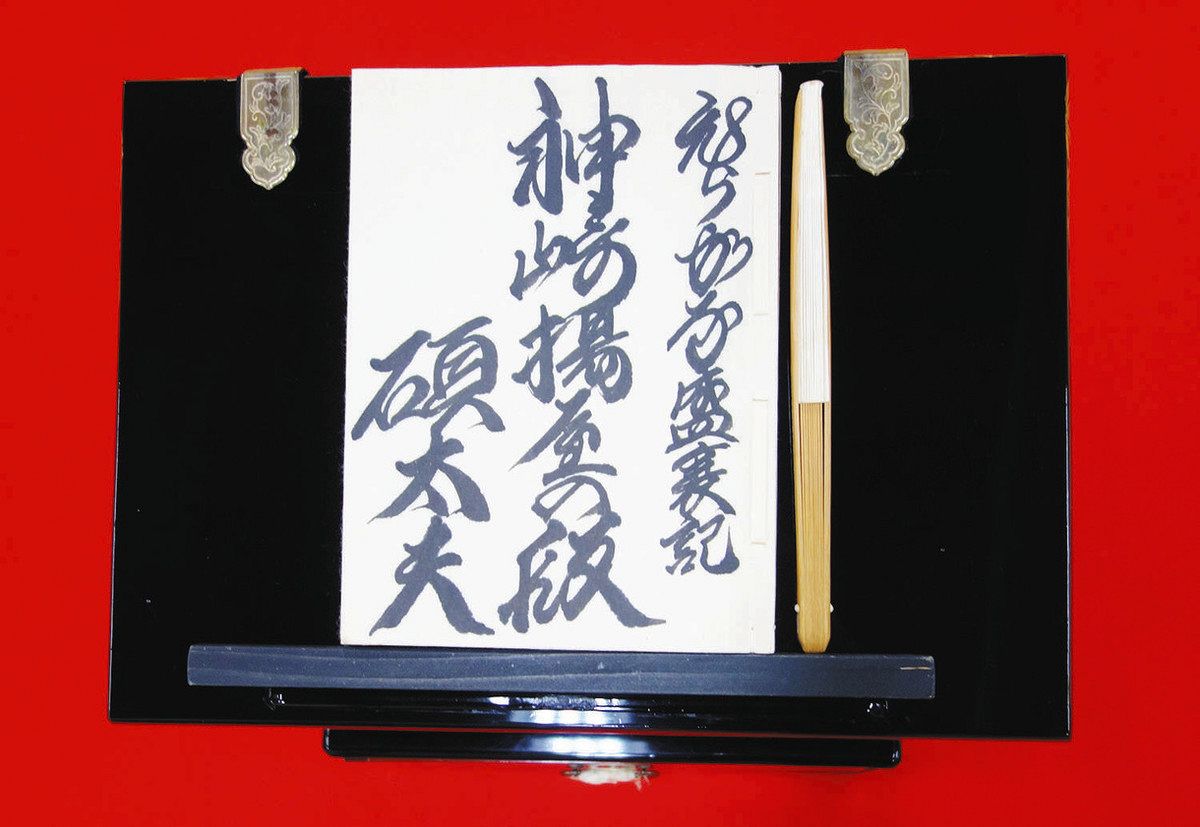 ひらかな盛衰記
神崎揚屋の段
碩太夫